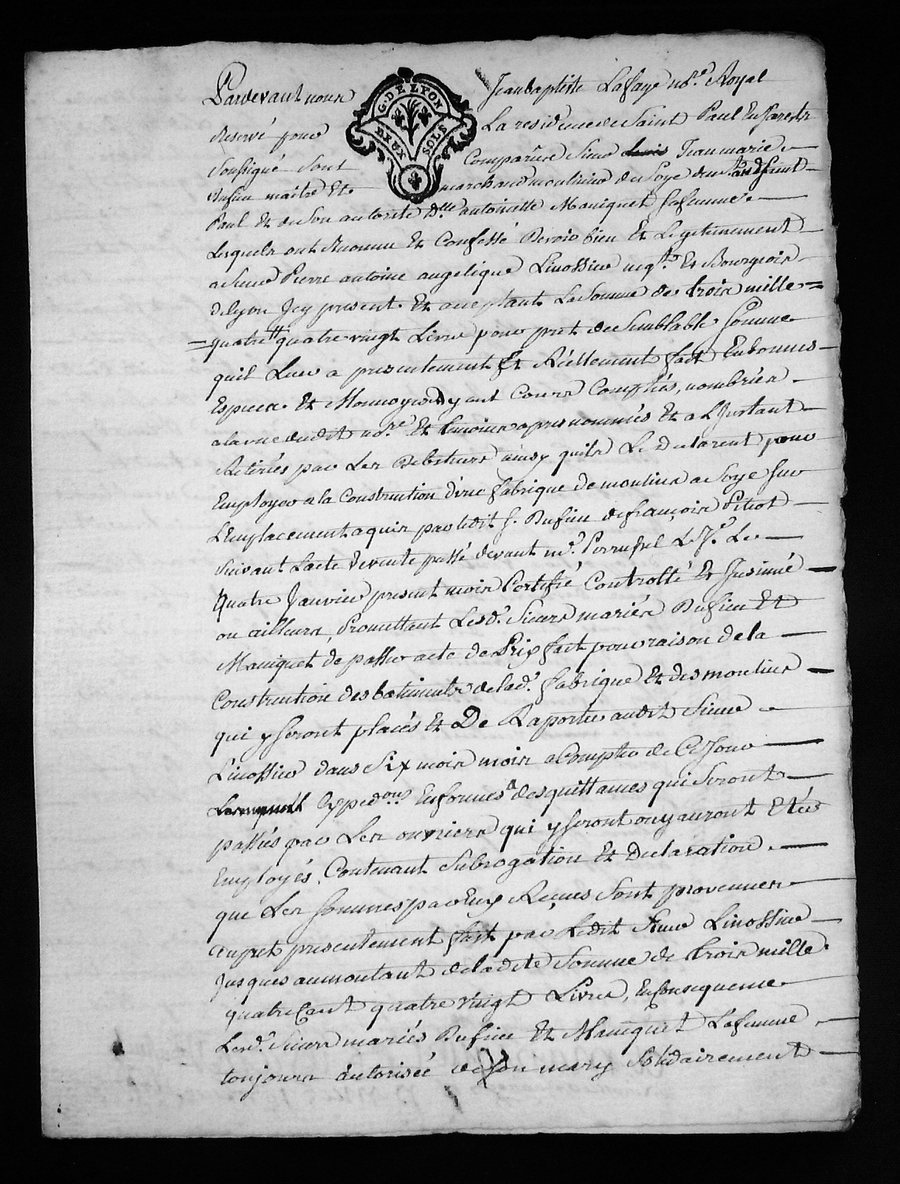 Pardevant nous Jean baptiste Lafaye no.re Royal
G. DE LYON
DEUX SOLS
Reservé pour La residence de Saint Paul En Jarest
Soussigné sont Comparûs Sieur Jean marie
Rufieu maitre Et marchand moulinier de Soye dud. Saint
Paul Et de Son autorité d.lle antoinette Maniquet Sa femme
Lesquels ont Reconnu Et Confessé Devoir bien Et Legitimement
a Sieur Pierre antoine angelique Linossier neg.t Et Bourgeois
de Lyon Jcy present Et acceptant La Somme de trois mille
quatre quatre vingt Livres pour pret de Semblable Somme
quil Leur a presentement Et Réellement fait En bonnes
Especes Et Monnoyes ayant Cours Comptés, nombrées
a la vue dudit no.re Et temoins apres nommés Et a L'Jnstant
Retirées par Les Debiteurs ainsy quils Le Declarent pour
Employer a la Construction d'une fabrique de moulins a Soye Sur
L'Emplacement aquis par ledit S. Rufieu de françois Pitiot
Suivant L'acte de vente passé devant m.e Le
Quatre Janvier present mois Certifié Controllé Et Jnsinué
ou ailleurs, Promettent Lesd. Sieurs mariés Rufieu Et
Maniquet de passer acte de Prix fait pour raison de la
Construction des batiments de lad. fabrique Et des moulins
qui y Seront placés Et De Raporter audit Sieur
Linossier dans Six mois mois a Compter de Ce Jour
Expedons En formes des quittances qui Seront
passées par Les ouvriers qui y Seront ou y auront Etés
Employés, Contenant Subrogation Et Declaration
que Les Sommes par Eux Reçues Sont provenues
du pret presentement fait par Ledit Sieur Linossier
Jusques au montant de la dite Somme de trois mille
quatre Cent quatre vingt Livres, En Consequence
Lesd. Sieurs mariés Rufieu Et Maniquet La femme
toujours autorisée de Son mary Solidairement